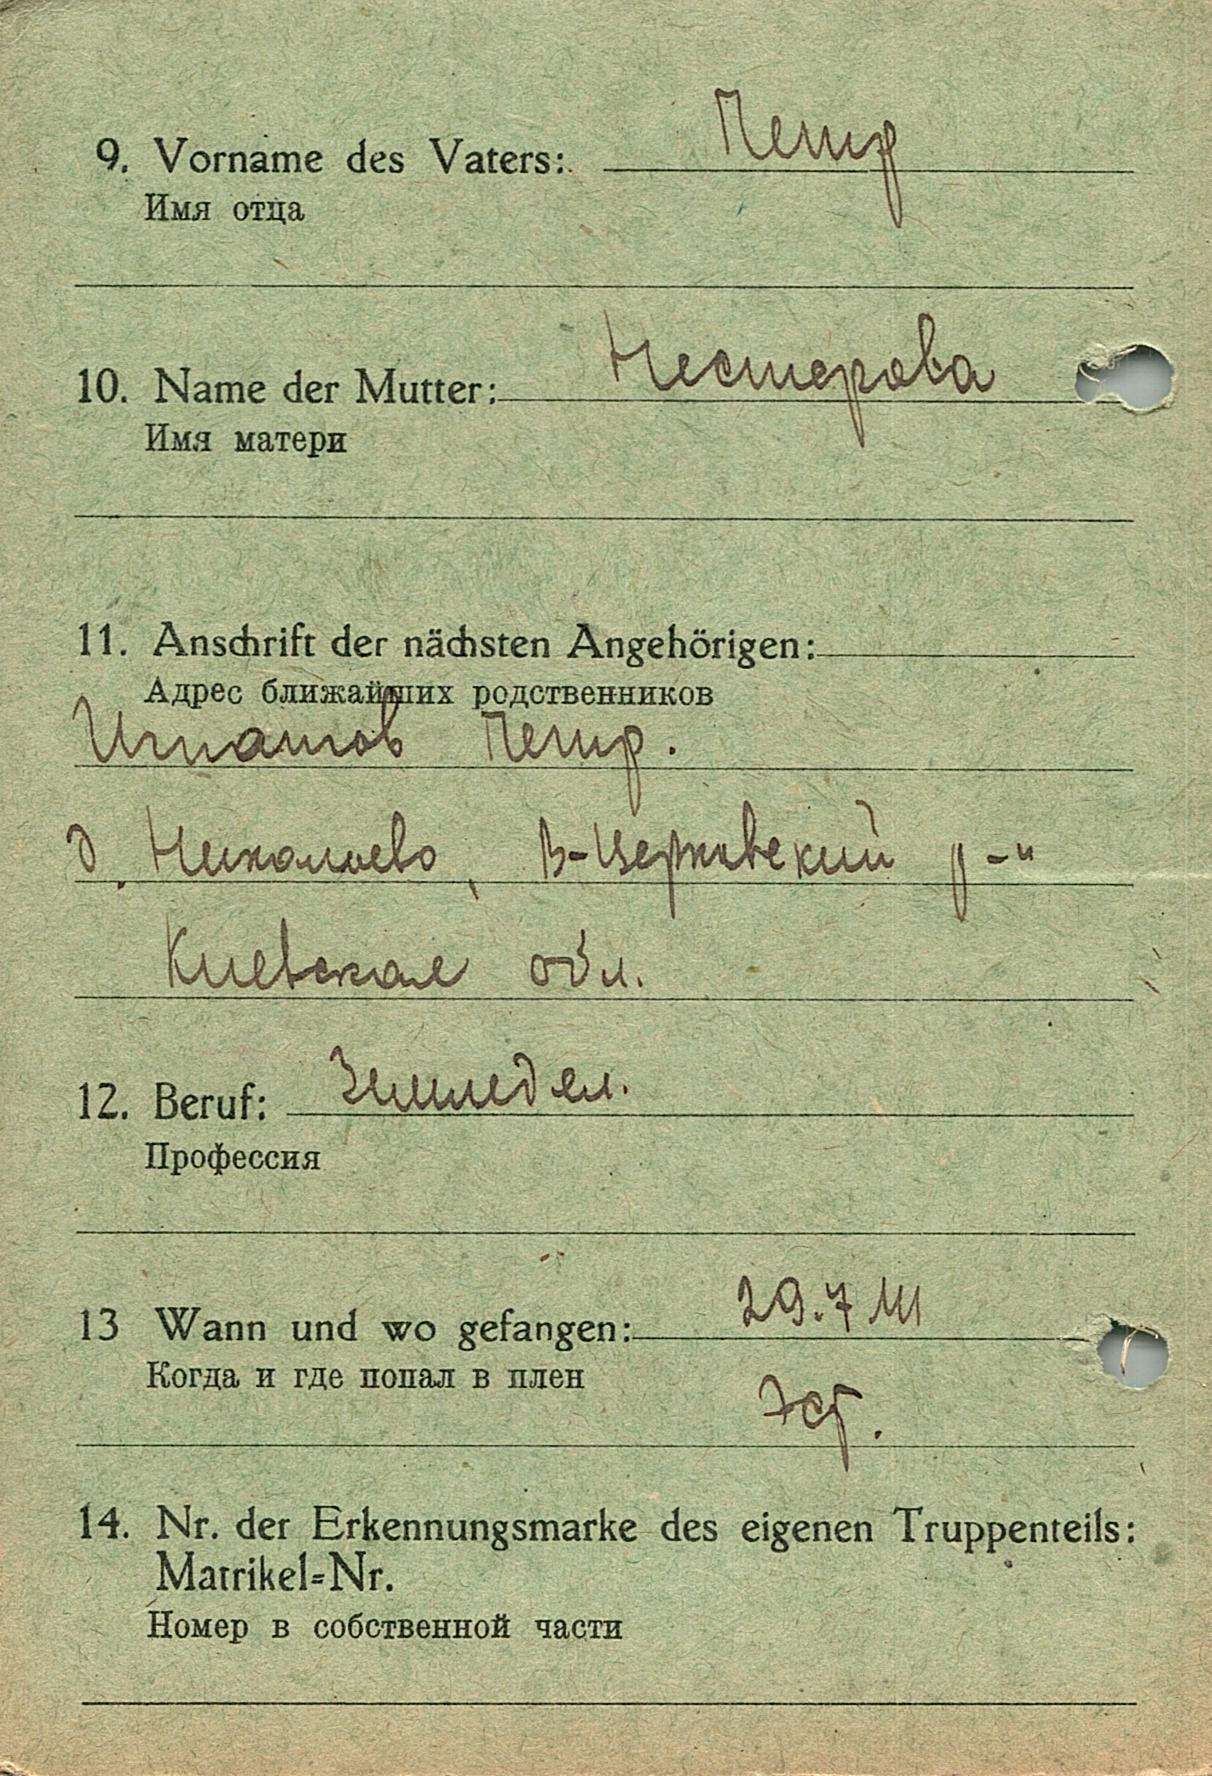 9. Vorname des Vaters: Петр
Имя отца
10. Name der Mutter: Нестерова
Имя матери
11. Anschrift der nächsten Angehörigen:
Адрес ближайших родственников
Игнатов Петр.
д. Николаево, В-Церковский р-н
Киевская обл.
12. Beruf: Земледел.
Профессия
13 Wann und wo gefangen: 29.7
Когда и где попал в плен
Эст.
14. Nr. der Erkennungsmarke des eigenen Truppenteils:
Matrikel-Nr.
Номер в собственной части